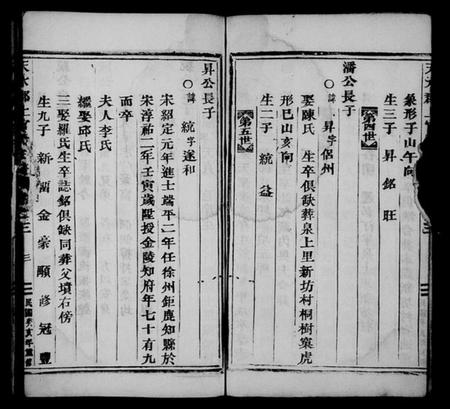 象形子山午向
生三子 昇 銘 旺
第四世
潘公長子
○諱 昇 字侶州
娶陳氏 生卒俱缺葬泉上里新坊村桐樹窠虎
形巳山亥向
生二子 統 益
第五世
昇公長子
○諱 統 字遂和
宋紹定元年進士端平二年任徐州鉅鹿知縣於
宋淳祐二年壬寅歲陞授金陵知府年七十有九
而卒
夫人李氏
繼娶邱氏
三娶羅氏生卒誌銘俱缺同葬父墳右傍
生九子 新 蘭 金 豪 顯 修 冠 豐
天水郡
三
民國癸亥年重修